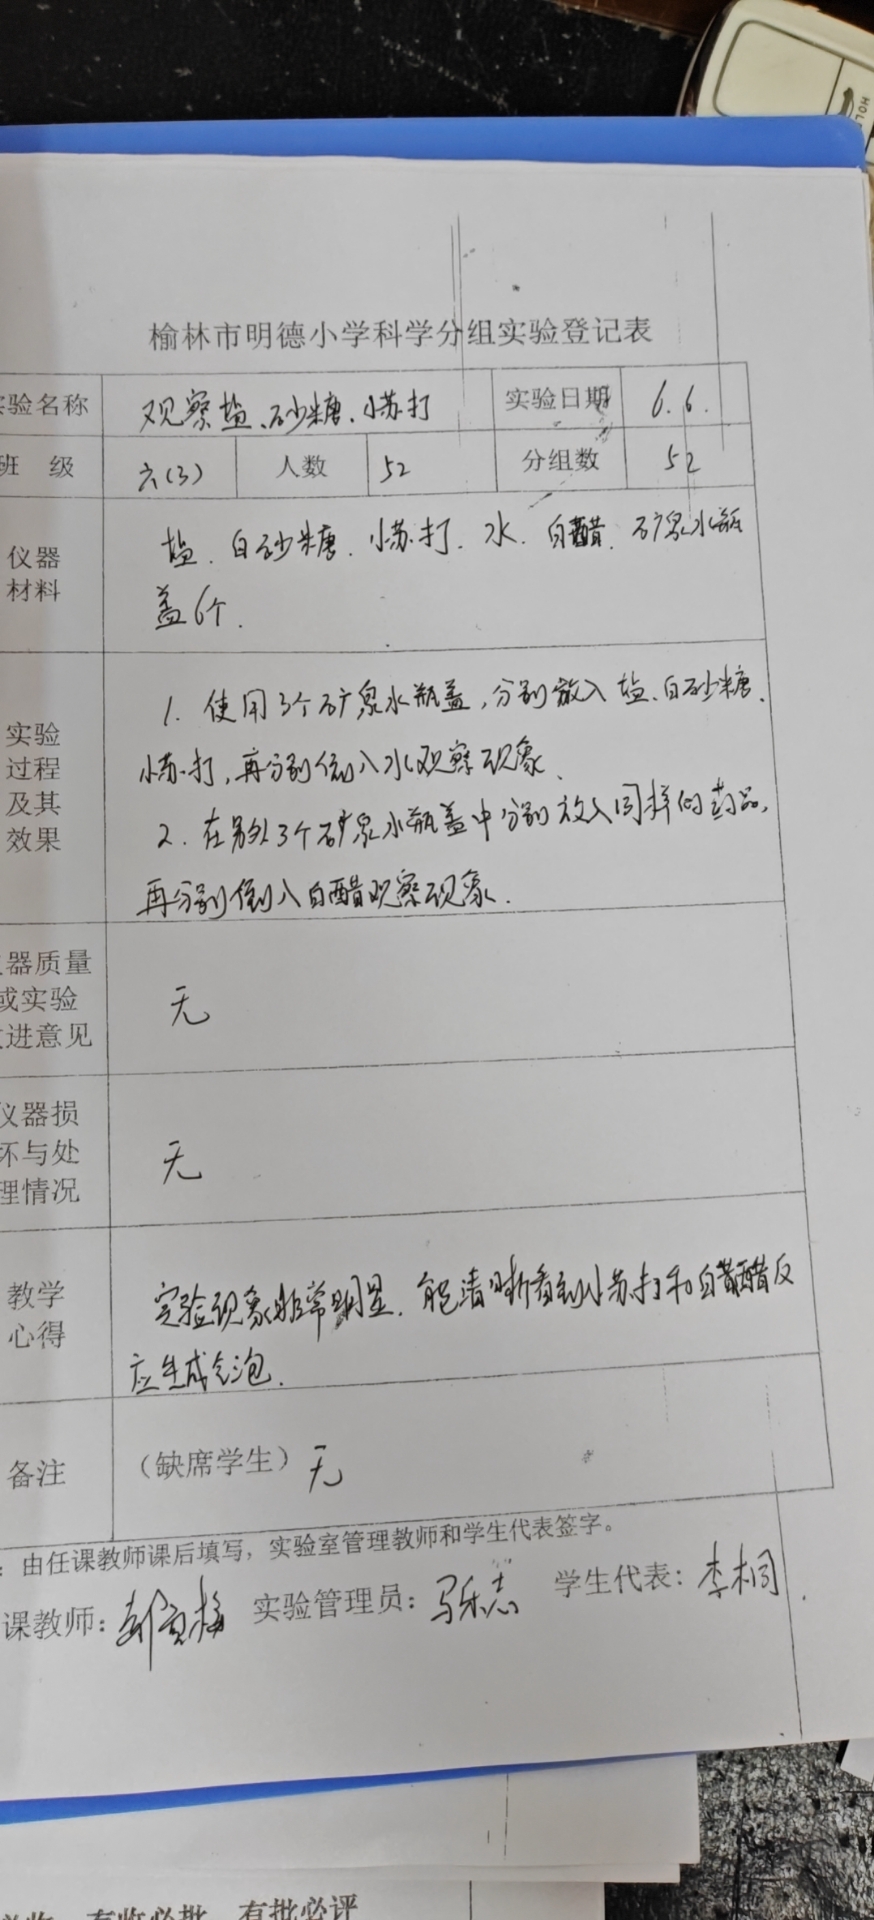 榆林市明德小学科学分组实验登记表
验名称 观察盐、砂糖、小苏打 实验日期 6.6.
班 级 六(3) 人数 52 分组数 52
仪器材料 盐、白砂糖、小苏打、水、白醋、矿泉水瓶
盖6个.
实验过程及其效果 1. 使用3个矿泉水瓶盖,分别放入盐、白砂糖、
小苏打,再分别倒入水观察现象、
2. 在另外3个矿泉水瓶盖中分别放入同样的药品,
再分别倒入白醋观察现象.
器质量
或实验
进意见 无
仪器损
坏与处
理情况 无
教学心得 实验现象非常明显、能清晰看到小苏打和白醋反
应生成气泡.
备注 (缺席学生) 无
:由任课教师课后填写,实验室管理教师和学生代表签字。
课教师: 实验管理员:马乐志 学生代表:李桐
有收必批 有批必评